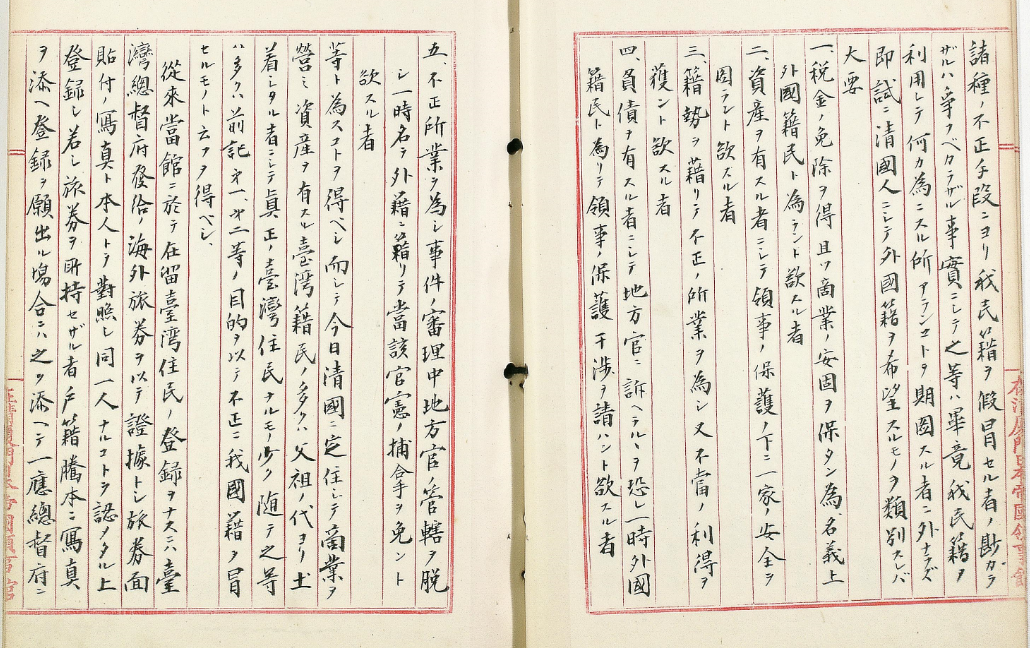 諸種ノ不正手段ニヨリ我民籍ヲ假冒セル者ノ尠カラ
ザルハ爭フベカラザル事實ニシテ之等ハ畢竟我民籍ヲ
利用シテ何カ為ニスル所アランコトヲ期圖スル者ニ外ナラズ
即試ニ清國人ニシテ外國籍ヲ希望スルモノヲ類別スレバ
大要
一、税金ノ免除ヲ得且ツ商業ノ安固ヲ保タン為、名義上
外國籍民ト為ラント欲スル者
二、資産ヲ有スル者ニシテ領事ノ保護ノ下ニ一家ノ安全ヲ
図ラント欲スル者
三、籍勢ヲ藉リテ不正ノ所業ヲ為シ又不當ノ利得ヲ
獲ント欲スル者
四、負債ヲ有スル者ニシテ地方官ニ訴ヘラルヽヲ恐レ一時外國
籍民ト為リテ領事ノ保護干渉ヲ請ハント欲スル者
在清廈門日本帝國領事館
五、不正所業ヲ為シ事件ノ審理中地方官ノ管轄ヲ脱
シ一時名ヲ外籍ニ藉リテ當該官憲ノ捕拿ヲ免ント
欲スル者
等ト為スコトヲ得ベシ而シテ今日清國ニ定住シテ商業ヲ
營ミ資産ヲ有スル臺灣籍民ノ多クハ父祖ノ代ヨリ土
着シタル者ニシテ眞正ノ臺灣住民ナルモノ少ク随テ之等
ハ多クハ前記第一、第二等ノ目的ヲ以テ不正ニ我國籍ヲ冒
セルモノト云フヲ得ベシ、
從來當館ニ於テ在留臺湾住民ノ登録ヲナスニハ臺
灣總督府發給ノ海外旅券ヲ以テ證據トシ旅券面
貼付ノ寫真ト本人トヲ對照シ同一人ナルコトヲ認メタル上
登録シ若シ旅券ヲ所持セザル者戸籍謄本ニ寫真
ヲ添ヘ登録ヲ願出ル場合ニハ之ヲ添ヘテ一應總督府ニ
在清廈門日本帝國領事館